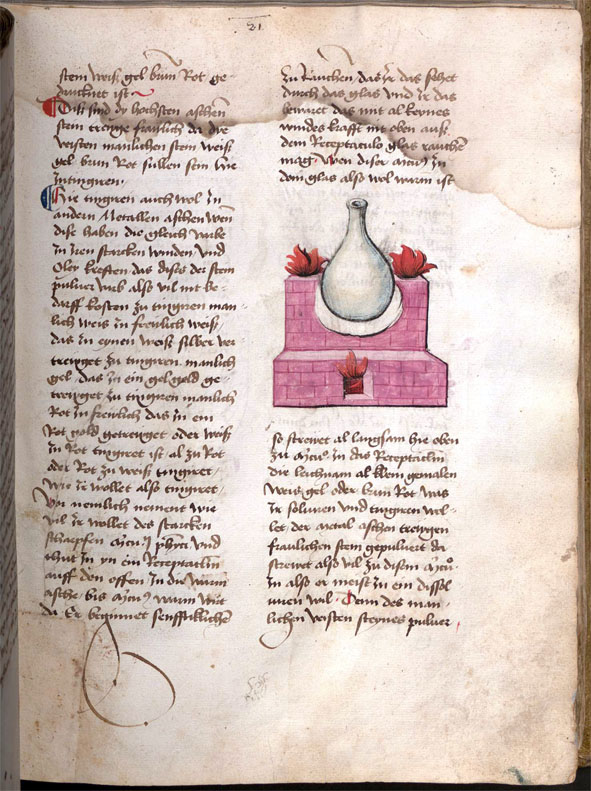 21
stein weiß gel brun Rot ge-
drucknet ist
Diß sind dy hochsten aschen
stein treuge fraulich da die
vesten manlichen stein weiß
gel brun Rot sullen sein hie
zu tingiren
Hie tingiren auch wol zu
andern Metallen aschen wen
dise haben die gleich varbe
zu iren starcken winden und
Oley kreften das dises der stein
pulver uns also vil mit be-
darff kosten zu tingiren man-
lich weis zu freulich weiß
das zu eynen weiß silber ver
treuget zu tingiren manlich
gel das zu ein gel gold ge-
treuget zu tingiren manlich
Rot zu freulich das zu ein
Rot gold getreuget oder weiß
zu Rot tingiret ist al zu Rot
oder Rot zu weiß tingiret
wie ir wollet also tingiret
nemlich nement wie
vil ir wollet des starcken
scharpfen und
thut in yn ein Receptaculum
auff den offen In die warm
asche bis warm wirt
da Er beginnet senfftiklichen
zu Rauchen das ir das sehet
durch das glas und ir das
bewaret das mit al keynes
windes krafft mit oben auß
dem Receptaculo glas rauchen
mag wen diser zu
dem glas also wol warm ist
so strewet al lungsam hie oben
zu in das Receptaculum
die leichnam al klein gemalen
weis gel oder brun Rot was
ir solviren und tingiren wol-
let der metal aschen treugen
fraulichen stein gepulvert da
strewet also vil zu disem
zu also er meist zu ein dissol
viren wil Denn des man-
lichen vesten steynes pulver